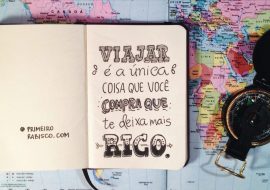 PRIMEIRO
RABISCO.COM
VIAJAR
é a única
COISA QUE VOCÊ
COMPRA QUE
te deixa mais
RICO.